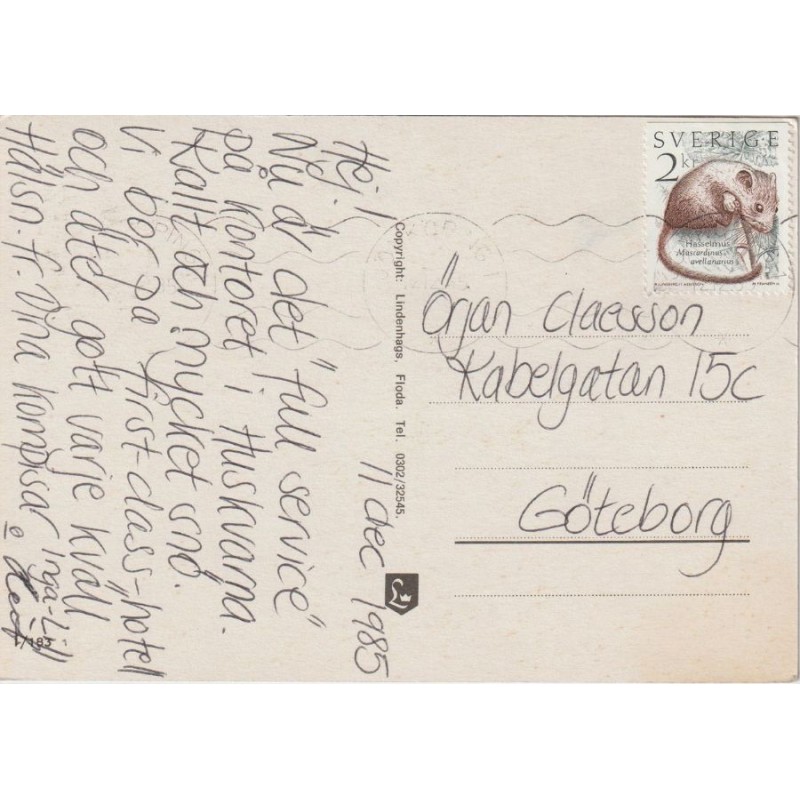 Hej! 11 dec 1985
Nu är det "full service"
på kontoret i Huskvarna.
Kallt och mycket snö.
Vi bor på "first-class"-hotell
och äter gott varje kväll
Hälsn. fr. Dina kompisar Inga-Lill
o
1/183
Copyright: Lindenhags, Floda. Tel. 0302/32545.
SVERIGE
2 kr
Hasselmus
Muscardinus
avellanarius
Örjan Claesson
Kabelgatan 15c
Göteborg